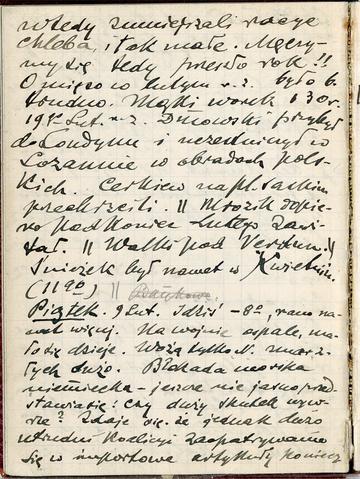 wtedy zmniejszali racye
chleba, i tak małe. Męczy-
my się tedy przeszło rok!!
O mięso w lutym r. z. było b.
trudno. Mąki worek 130 r.
19 Lut. r. z. Dmowski przybył
do Londynu i uczestniczył w
Lozannie w obradach pols-
kich. Cerkiew na pl. Saskim
przechrzcili. || Mrozik dopie-
ro pod koniec Lutego zawi-
tał. || Walki pod Verdun. ||
Śnieżek był nawet w Kwietniu.
(11 go) ||
Piątek. 9 Lut. Idziś -8°, rano na-
wet więcej. Na wojnie ospale, ma-
ło się dzieje. Wożą tylko N. zmarz-
łych dużo. Blokada morska
niemiecka - jeszcze nie jasno przed-
stawia się! Czy duży skutek wywo-
rze? Zdaje się że jednak dużo
utrudni Koalicyi zaopatrywanie
się w importowe artykuły koniecz